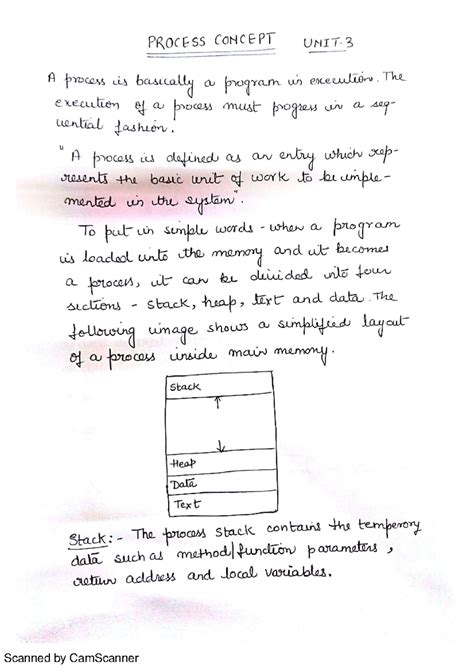 PROCESS CONCEPT UNIT-3
A process is basically a program in execution. The
execution of a process must progress in a seq-
uential fashion.
"A process is defined as an entry which rep-
resents the basic unit of work to be imple-
mented in the system".
To put in simple words - when a program
is loaded into the memory and it becomes
a process, it can be divided into four
sections - stack, heap, text and data. The
following image shows a simplified layout
of a process inside main memory.
Stack
Heap
Data
Text
Stack:- The process stack contains the temperory
data such as method/function parameters,
return address and local variables.
Scanned by CamScanner